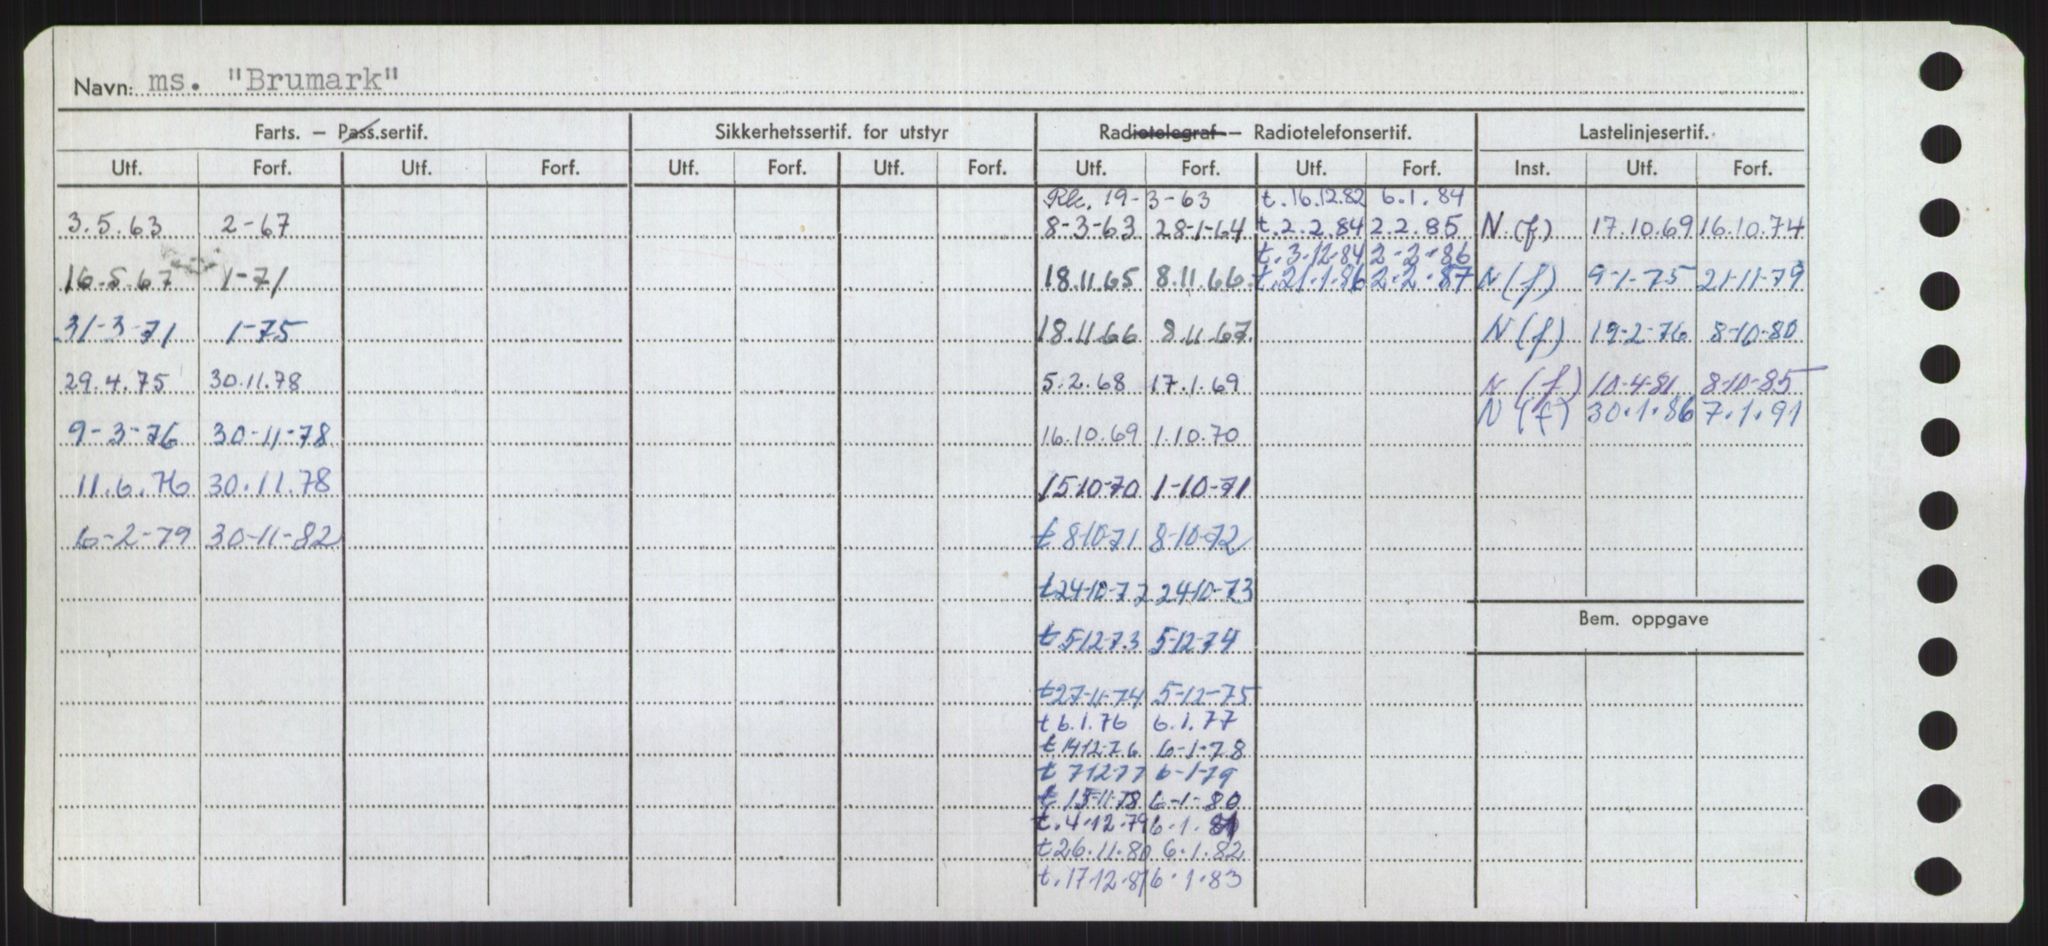 Navn: ms. "Brumark"
Farts. – Pass.sertif. Sikkerhetssertif. for utstyr Radiotelegraf – Radiotelefonsertif. Lastelinjesertif.
Utf. Forf. Utf. Forf. Utf. Forf. Utf. Forf. Utf. Forf. Utf. Forf. Inst. Utf. Forf.
19-3-63 t. 16.12.82 6.1.84
3.5.63 2-67 8-3-63 28-1-64 t. 2.2.84 2.2.85 N (f) 17.10.69 16.10.74
t. 3.12.84 2-2-86
16.5.67 1-71 18.11.65 8.11.66 t. 21.1.86 2.2.87 N (f) 9-1-75 21-11-79
31-3-71 1-75 18.11.66 8.11.67 N (f) 19-2-76 8-10-80
29.4.75 30.11.78 5.2.68 17.1.69 N (f) 10-4-81 8-10-85
N (f) 30.1.86 7.1.91
9-3-76 30-11-78 16.10.69 1.10.70
11.6.76 30.11.78 15-10-70 1-10-71
6-2-79 30-11-82 t 8-10-71 8-10-72
t 24-10-72 24-10-73
Bem. oppgave
t 5-12-73 5-12-74
t 27-11-74 5-12-75
t 6.1.76 6.1.77
t 14-12-76 6-1-78
t 7-12-77 6-1-79
t 15-11-78 6-1-80
t. 4.12.79 6.1.81
t 26.11.80 6.1.82
t. 17.12.81 6.1.83